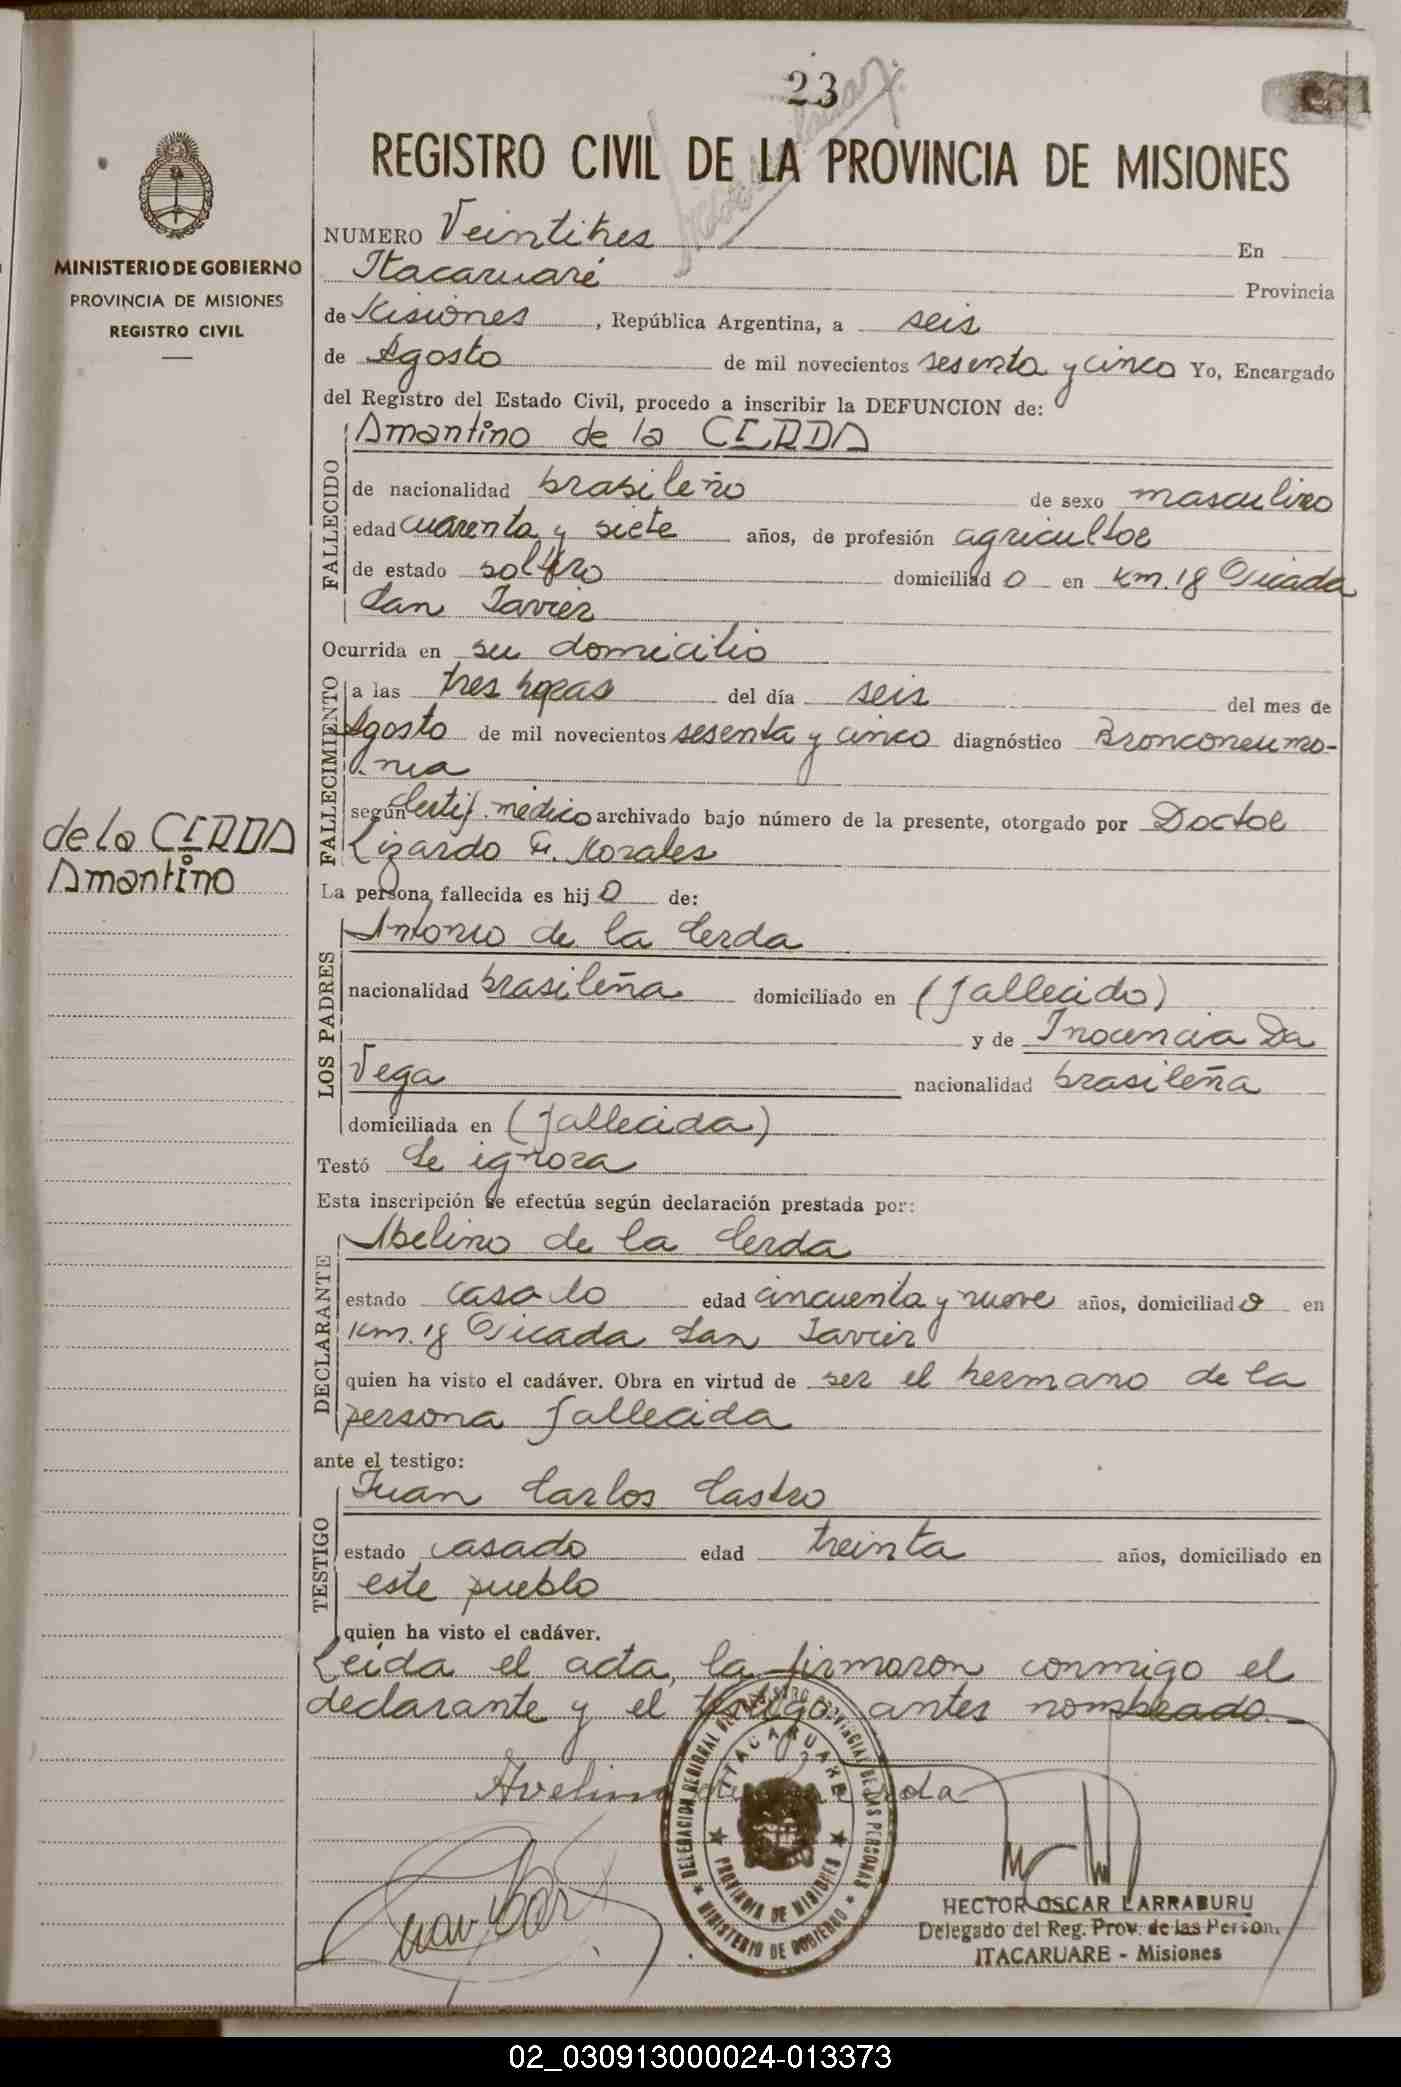 23
REGISTRO CIVIL DE LA PROVINCIA DE MISIONES
MINISTERIO DE GOBIERNO
PROVINCIA DE MISIONES
REGISTRO CIVIL
NUMERO Veintitres En
Itacaruaré Provincia
de Misiones, República Argentina, a seis
de Agosto de mil novecientos sesenta y cinco Yo, Encargado
del Registro del Estado Civil, procedo a inscribir la DEFUNCION de:
FALLECIDO
Amantino de la CERDA
de nacionalidad brasileño de sexo masculino
edad cuarenta y siete años, de profesión agricultor
de estado soltero domiciliado en Km. 18 Picada
San Javier
Ocurrida en su domicilio
FALLECIMIENTO
a las tres horas del día seis del mes de
Agosto de mil novecientos sesenta y cinco diagnóstico Bronconeumo-
nia
según Certif. médico archivado bajo número de la presente, otorgado por Doctor
Lizardo F. Morales
de la CERDA
Amantino
La persona fallecida es hijo de:
LOS PADRES
Antonio de la Cerda
nacionalidad brasileña domiciliado en (fallecido)
y de Inocencia Da
Vega nacionalidad brasileña
domiciliada en (fallecida)
Testó Se ignora
Esta inscripción se efectúa según declaración prestada por:
DECLARANTE
Abelino de la Cerda
estado casado edad cincuenta y nueve años, domiciliado en
Km. 18 Picada San Javier
quien ha visto el cadáver. Obra en virtud de ser el hermano de la
persona fallecida
ante el testigo:
TESTIGO
Juan Carlos Castro
estado casado edad treinta años, domiciliado en
este pueblo
quien ha visto el cadáver.
Leida el acta, la firmaron conmigo el
declarante y el testigo antes nombrado.
Avelino de la Cerda
DELEGACION REGIONAL DEL REGISTRO PROVINCIAL DE LAS PERSONAS
ITACARUARE
PROVINCIA DE MISIONES
MINISTERIO DE GOBIERNO
HECTOR OSCAR LARRABURU
Delegado del Reg. Prov. de las Person.
ITACARUARE - Misiones
02_030913000024-013373